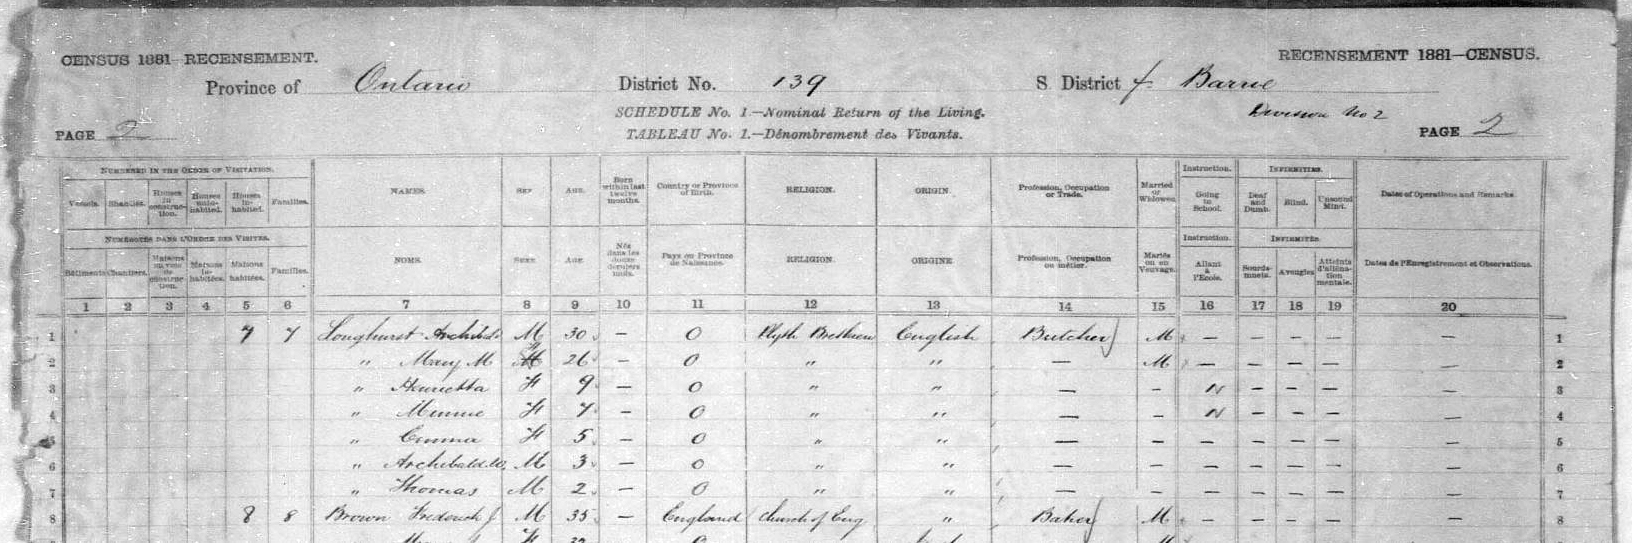 CENSUS 1881—RECENSEMENT. RECENSEMENT 1881—CENSUS.
Province of Ontario District No. 139 S. District f Barrie
SCHEDULE No. 1.—Nominal Return of the Living. Division No 2
PAGE 2 TABLEAU No. 1.—Dénombrement des Vivants. PAGE 2
NUMBERED IN THE ORDER OF VISITATION. NAMES. SEX AGE. Born within last twelve months. Country or Province of Birth. RELIGION. ORIGIN. Profession, Occupation or Trade. Married or Widowed. Instruction. INFIRMITIES. Dates of Operations and Remarks
Vessels. Shanties. Houses in construction. Houses uninhabited. Houses inhabited. Families. Going to School. Deaf and Dumb. Blind. Unsound Mind.
NUMÉROTÉS DANS L'ORDRE DES VISITES. NOMS. SEXE AGE Nés dans les douze derniers mois. Pays ou Province de Naissance. RELIGION. ORIGINE. Profession, Occupation ou métier. Mariés ou en Veuvage. Instruction. INFIRMITÉS Dates de l'Enregistrement et Observations.
Bâtiments Chantiers. Maisons en voie de construction. Maisons inhabitées. Maisons habitées. Familles. Allant à l'École. Sourds-muets. Aveugles Atteints d'aliénation mentale.
1 2 3 4 5 6 7 8 9 10 11 12 13 14 15 16 17 18 19 20
1 7 7 Longhurst Archibald M 30 — O Plyth Brethren English Butcher M — — — — — 1
2 " Mary M F 26 — O " " — M — — — — — 2
3 " Henrietta F 9 — O " " — — N — — — — 3
4 " Minnie F 7 — O " " — — N — — — — 4
5 " Emma F 5 — O " " — — — — — — — 5
6 " Archibald W. M 3 — O " " — — — — — — — 6
7 " Thomas M 2 — O " " — — — — — — — 7
8 8 8 Brown Frederick J M 35 — England Church of Eng " Baker M — — — — — 8